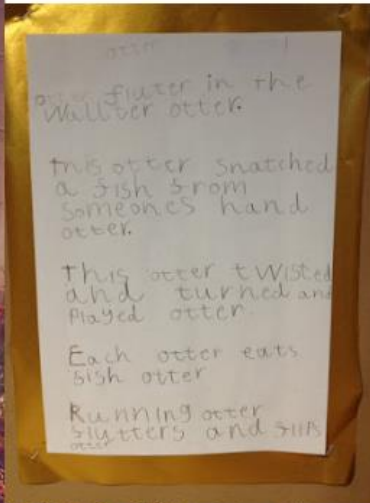 otter
otter fluter in the
wallter otter.
This otter snatched
a fish from
someones hand
otter.
This otter twisted
and turned and
played otter.
Each otter eats
fish otter
Running otter
flutters and flips
otter